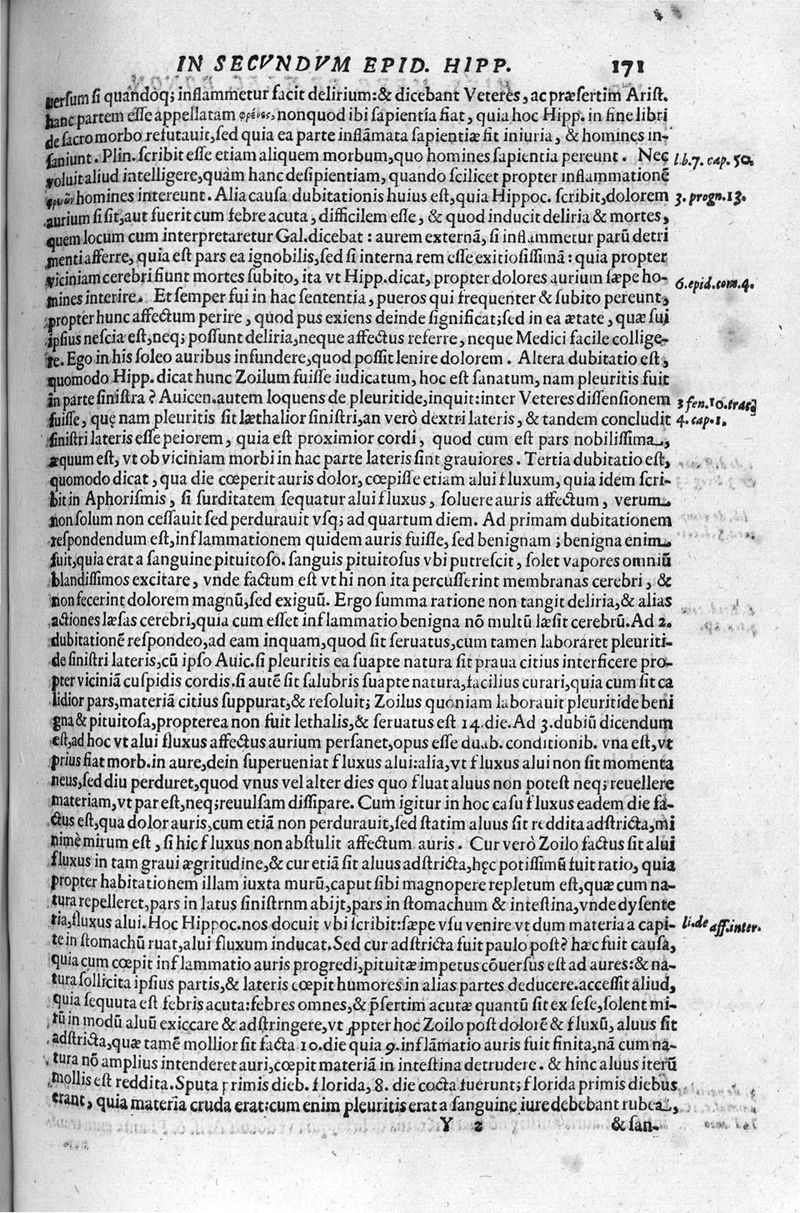 IN SECVNDVM EPID. HIPP. 171
uersum si quandoq; inflammetur facit delirium:& dicebant Veteres, ac præsertim Arist.
hanc partem esse appellatam φρένας, nonquod ibi sapientia fiat, quia hoc Hipp. in fine libri
de sacro morbo refutauit, sed quia ea parte inflãmata sapientiæ sit iniuria, & homines in-
saniunt. Plin. scribit esse etiam aliquem morbum, quo homines sapientia pereunt. Neç
l.b.7. cap. 50.
voluit aliud intelligere, quàm hanc desipientiam, quando scilicet propter inflammationẽ
φρενῶν homines intereunt. Alia causa dubitationis huius est, quia Hippoc. scribit, dolorem
3. progn. 13.
aurium si sit, aut fuerit cum febre acuta, difficilem esse, & quod inducit deliria & mortes,
quem locum cum interpretaretur Gal. dicebat: aurem externã, si inflammetur parũ detri
menti afferre, quia est pars ea ignobilis, sed si interna rem esse exitiosissimã: quia propter
viciniam cerebri fiunt mortes subito, ita vt Hipp. dicat, propter dolores aurium sæpe ho-
6. epid. com. 4.
mines interire. Et semper fui in hac sententia, pueros qui frequenter & subito pereunt,
propter hunc affectum perire, quod pus exiens deinde significat; sed in ea ætate, quæ sui
ipsius nescia est, neq; possunt deliria, neque affectus referre, neque Medici facile collige-
re. Ego in his soleo auribus infundere, quod possit lenire dolorem. Altera dubitatio est,
quomodo Hipp. dicat hunc Zoilum fuisse iudicatum, hoc est sanatum, nam pleuritis fuit
in parte sinistra? Auicen. autem loquens de pleuritide, inquit: inter Veteres dissensionem
3 fen. 10. tract
fuisse, quę nam pleuritis sit læthalior sinistri, an verò dextri lateris, & tandem concludit
4. cap. 1.
sinistri lateris esse peiorem, quia est proximior cordi, quod cum est pars nobilissima,
æquum est, vt ob viciniam morbi in hac parte lateris sint grauiores. Tertia dubitatio est,
quomodo dicat, qua die cœperit auris dolor, cœpisse etiam alui fluxum, quia idem scri-
bit in Aphorismis, si surditatem sequatur alui fluxus, soluere auris affectum, verum
non solum non cessauit sed perdurauit vsq; ad quartum diem. Ad primam dubitationem
respondendum est, inflammationem quidem auris fuisse, sed benignam; benigna enim
fuit, quia erat a sanguine pituitoso. sanguis pituitosus vbi putrescit, solet vapores omniũ
blandissimos excitare, vnde factum est vt hi non ita percusserint membranas cerebri, &
non fecerint dolorem magnũ, sed exiguũ. Ergo summa ratione non tangit deliria, & alias
actiones læsas cerebri, quia cum esset inflammatio benigna nõ multũ læsit cerebrũ. Ad 2.
dubitationẽ respondeo, ad eam inquam, quod sit seruatus, cum tamen laboraret pleuriti-
de sinistri lateris, cũ ipso Auic. si pleuritis ea suapte natura sit praua citius interficere pro-
pter viciniã cuspidis cordis. si autẽ sit salubris suapte natura, facilius curari, quia cum sit ca
lidior pars, materiã citius suppurat, & resoluit; Zoilus quoniam laborauit pleuritide beni
gna & pituitosa, propterea non fuit lethalis, & seruatus est 14. die. Ad 3. dubiũ dicendum
est, ad hoc vt alui fluxus affectus aurium persanet, opus esse duab. conditionib. vna est, vt
prius fiat morb. in aure, dein superueniat fluxus alui: alia, vt fluxus alui non sit momenta
neus, sed diu perduret, quod vnus vel alter dies quo fluat aluus non potest neq; reuellere
materiam, vt par est, neq; reuulsam dissipare. Cum igitur in hoc casu fluxus eadem die fa-
ctus est, qua dolor auris, cum etiã non perdurauit, sed statim aluus sit reddita adstricta, mi
nimè mirum est, si hic fluxus non abstulit affectum auris. Cur verò Zoilo factus sit alui
fluxus in tam graui ægritudine, & cur etiã sit aluus adstricta, hęc potissimũ fuit ratio, quia
propter habitationem illam iuxta murũ, caput sibi magnopere repletum est, quæ cum na-
tura repelleret, pars in latus sinistrnm abijt, pars in stomachum & intestina, vnde dysente
ria, fluxus alui. Hoc Hippoc. nos docuit vbi scribit: sæpe vsu venire vt dum materia a capi-
li. de aff. inter.
te in stomachũ ruat, alui fluxum inducat. Sed cur adstricta fuit paulo post? hæc fuit causa,
quia cum cœpit inflammatio auris progredi, pituitæ impetus cõuersus est ad aures: & na-
tura sollicita ipsius partis, & lateris cœpit humores in alias partes deducere. accessit aliud,
quia sequuta est febris acuta: febres omnes, & p̃sertim acutæ quantũ sit ex sese, solent mi-
rũ in modũ aluũ exiccare & adstringere, vt ꝓpter hoc Zoilo post dolorẽ & fluxũ, aluus sit
adstricta, quæ tamẽ mollior sit facta 10. die quia 9. inflãmatio auris fuit finita, nã cum na-
tura nõ amplius intenderet auri, cœpit materiã in intestina detrudere. & hinc aluus iterũ
mollis est reddita. Sputa primis dieb. florida, 8. die cocta fuerunt; florida primis diebus
erant, quia materia cruda erat: cum enim pleuritis erat a sanguine iure debebant rubea,
Y 2 & san-